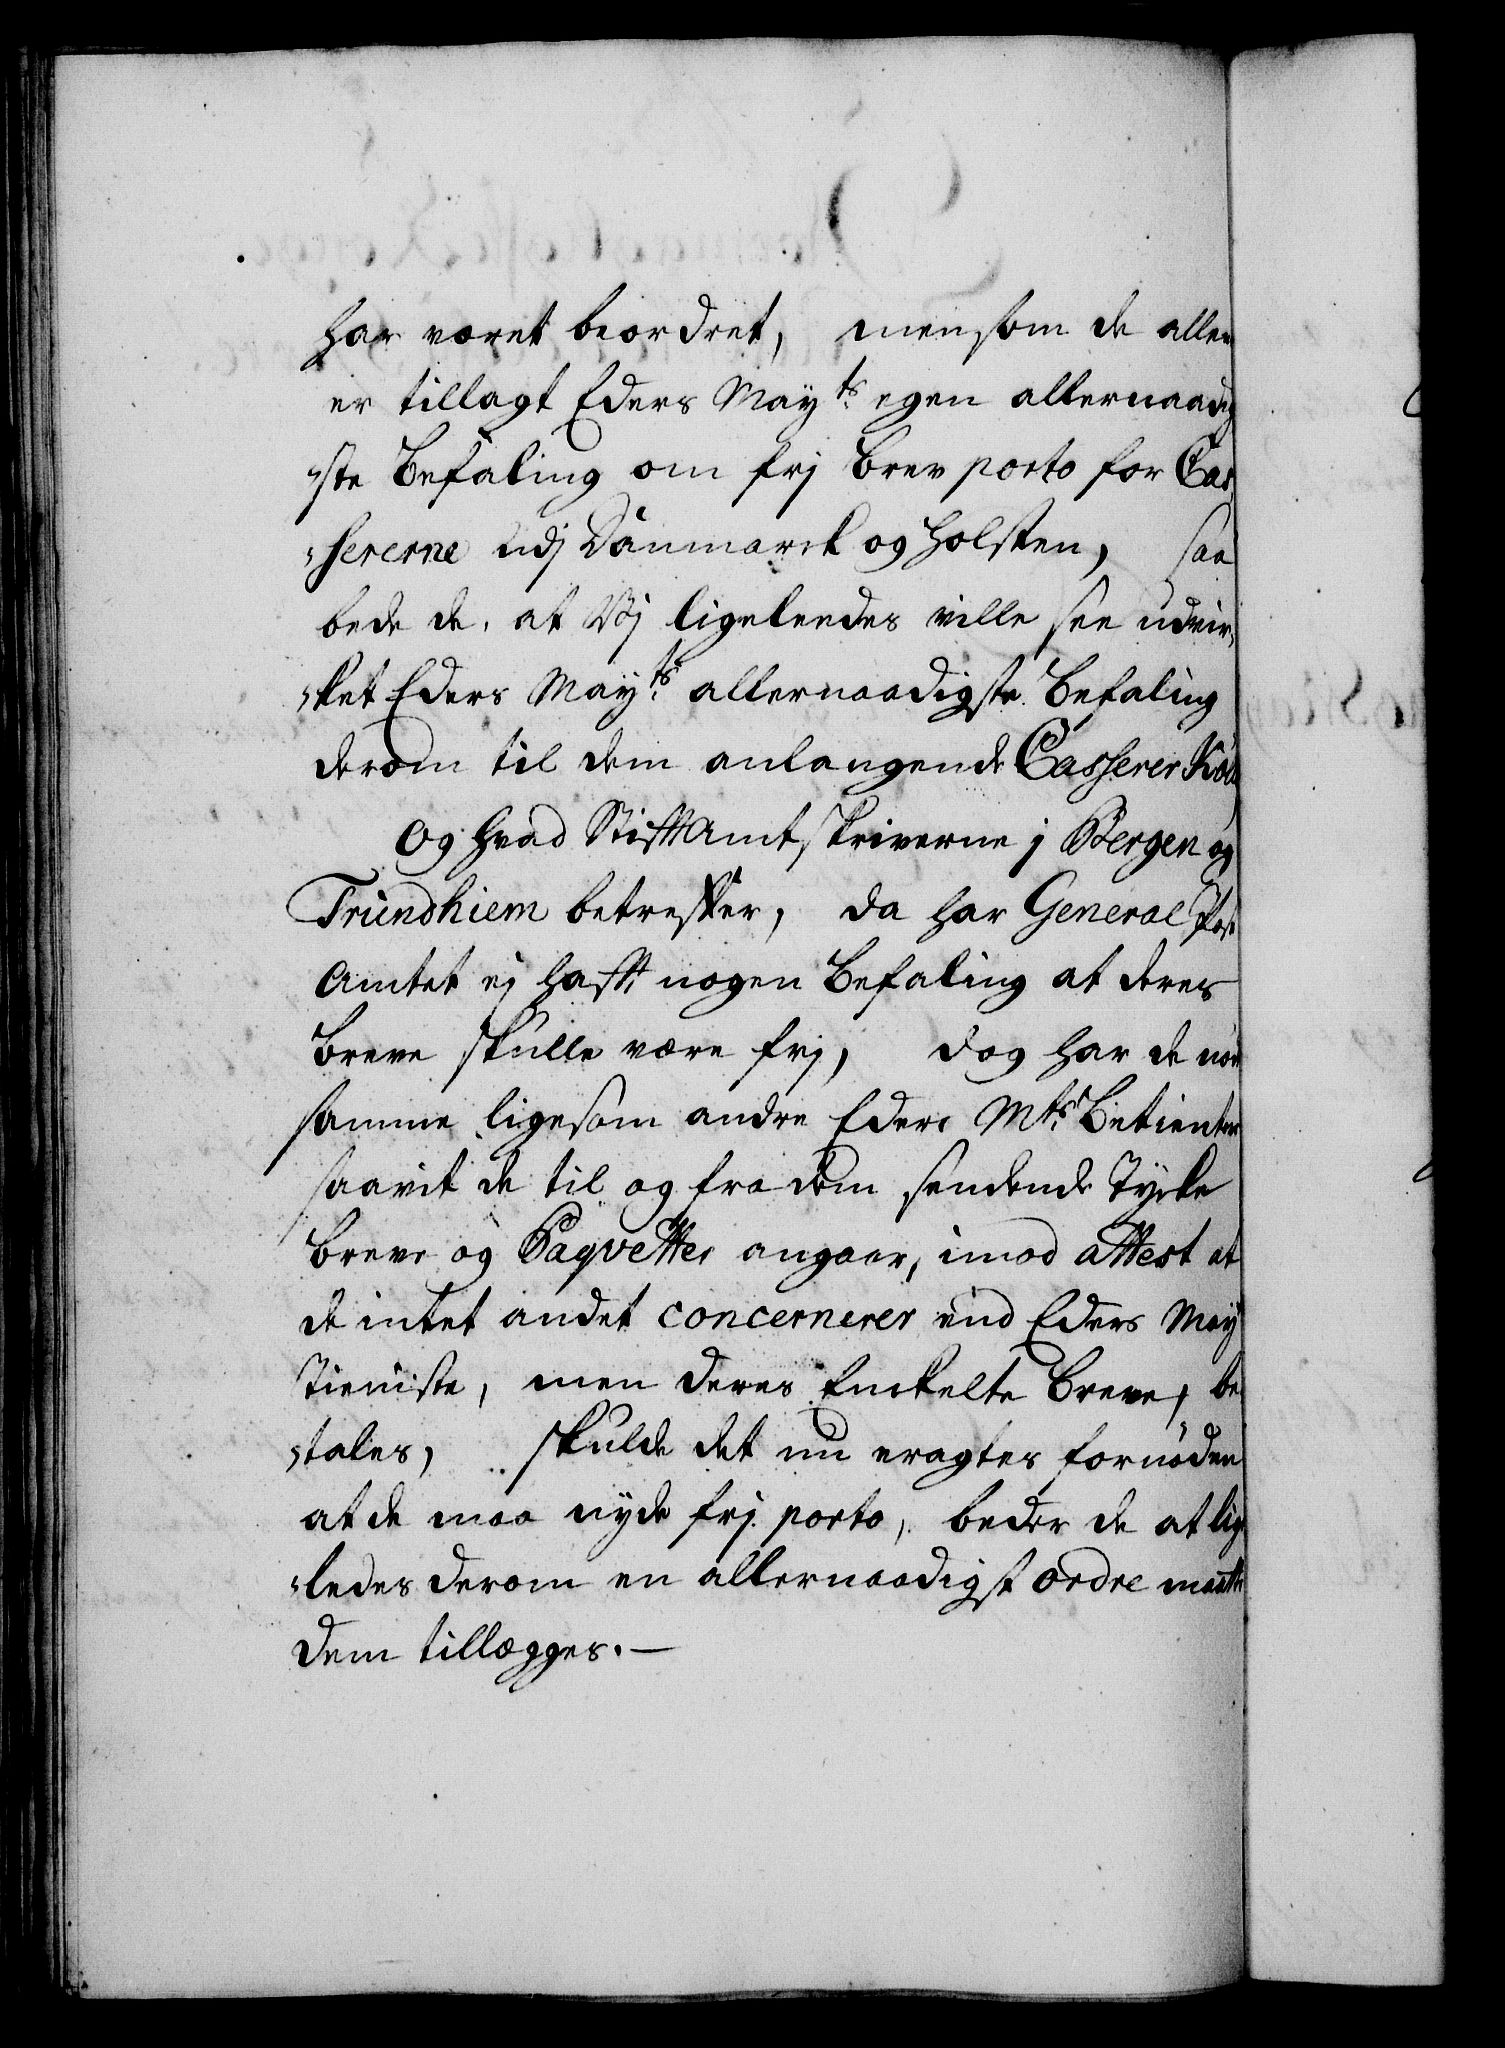 har været beordret, mensom de allene
er tillagt Eders May.ts egen allernaadig
ste Befaling om frj brev porto for Cas
sererne udj Danmarck og Holsten, saa
bede de, at Vj ligeleedes ville see udvir
ket Eders May.ts allernaadigste Befaling
derom til dem anlangende Casserer
Og hvad Stiftamtskriverne j Bergen og
Trundhiem betreffer, da har General Post
Amtet ej hafft nogen Befaling at deres
Breve skulle være frj, dog har de nød
samme ligesom andre Eders Mts Betienter
saavit de til og fra dem sendende Tycke
breve og Paqvetter angaar, imod attest at
de intet andet concernerer end Eders May
Tieniste, men deres Enckelte Breve, be
tales, skulde det nu eragtes fornøden
at de maa nyde frj porto, beder de at lige
ledes derom en allernaadigst ordre maatte
dem tillegges.—